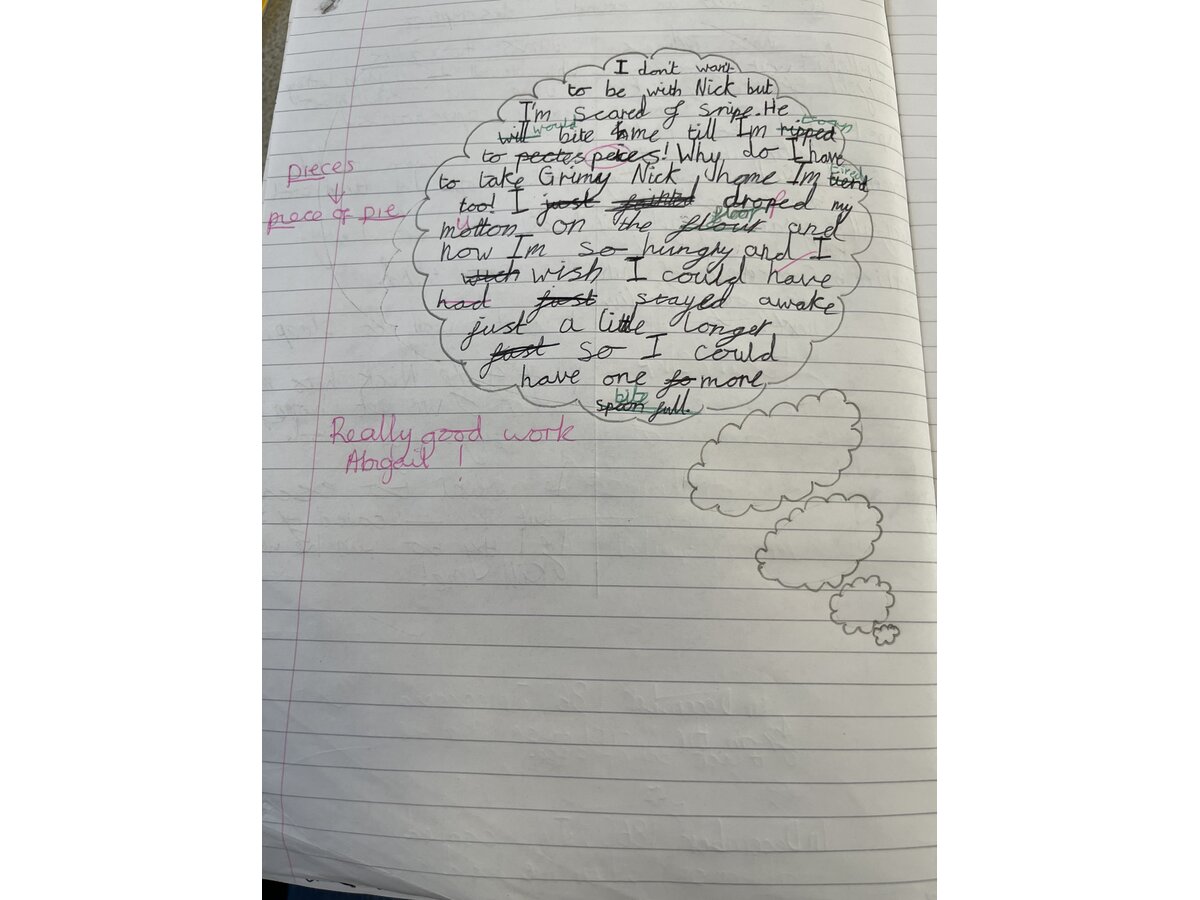 I don't want
to be with Nick but
I'm scared of snipe. He
will would bite me till I'm ripped torn
to pectes peices! Why do I have
to take Grimy Nick home Im tierd tired
too! I just fainted droped my
motton on the flour floor and
now Im so hungry and I
wich wish I could have
had just stayed awake
just a little longer
just so I could
have one fo more
spoon full. bite
pieces
piece of pie
Really good work
Abigail !